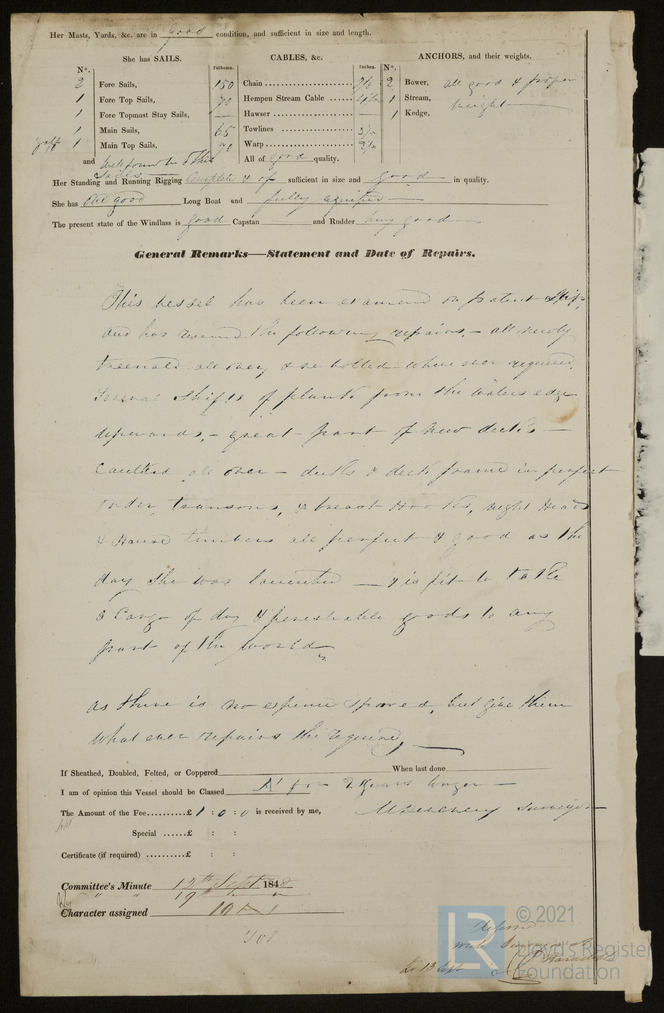 Her Masts, Yards, &c. are in good condition, and sufficient in size and length.
She has SAILS.
CABLES, &c.
ANCHORS, and their weights.
No.
Fathoms.
Inches.
No.
2 Fore Sails,
1 Fore Top Sails,
Fore Topmast Stay Sails,
1 Main Sails,
gaff 1 Main Top Sails,
and well found in other
Sails
150 Chain
Hempen Stream Cable
Hawser
65 Towlines
Warp
All of good quality.
2 Bower, all good & proper
1 Stream, weight
1 Kedge,
Her Standing and Running Rigging Complete & of sufficient in size and good in quality.
She has one good Long Boat and fully
The present state of the Windlass is good Capstan and Rudder good
General Remarks—Statement and Date of Repairs.
This vessel has been examined on patent Slip,
and has received the following repairs, - all newly
treenaild all over, & re bolted where ever required,
Several Shifts of plank from the waters edge
upwards, - great part of New decks —
Caulked all over - decks & deck frame in perfect
order, transoms, & breast Hooks, night Heads
& Hause timbers all perfect & good as the
day she was launched — & is fit to take
a Cargo of dry & perishable goods to any
part of the world
as there is no expence spared, but give them
what ever repairs the required,
If Sheathed, Doubled, Felted, or Coppered
When last done
I am of opinion this Vessel should be Classed A1 for Years longer
The Amount of the Fee £ 1 : 0 : 0 is received by me,
Surveyor
Special £ : :
Certificate (if required) £ : :
Committee's Minute 12th Sept 1848
19th
Character assigned 10 A1
© 2021
LR
Lloyd's Register
Foundation
13 Sept